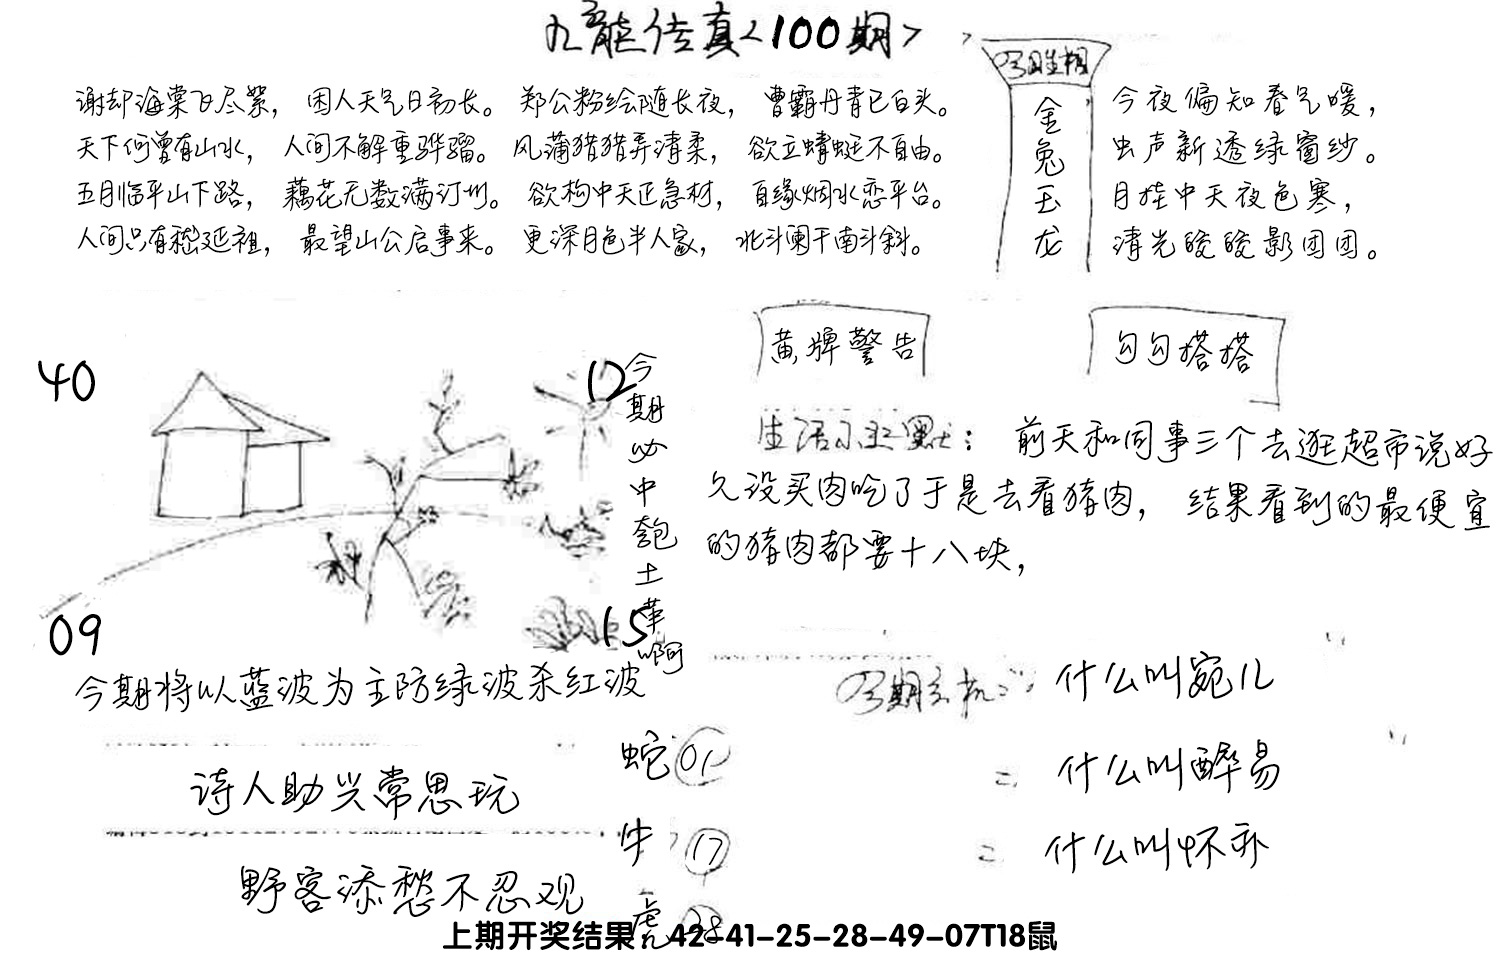 九龙传真<100期>
谢却海棠飞尽絮，困人天气日初长。郑公粉绘随长夜，曹霸丹青已白头。
天下何曾有山水，人间不解重骅骝。风蒲猎猎弄清柔，欲立蜻蜓不自由。
五月临平山下路，藕花无数满汀州。欲构中天正急材，自缘烟水恋平台。
人间只有嵇延祖，最望山公启事来。更深月色半人家，北斗阑干南斗斜。
今夜偏知春气暖，
虫声新透绿窗纱。
月挂中天夜色寒，
清光皎皎影团团。
金兔玉龙
黄牌警告
勾勾搭搭
40
12
09
15
今期必中
土革啊
生活小幽默：前天和同事三个去逛超市说好
久没买肉吃了于是去看猪肉，结果看到的最便宜
的猪肉都要十八块，
今期将以蓝波为主防绿波杀红波
诗人助兴常思玩
野客添愁不忍观
蛇 01
牛 17
虎 28
今期玄机：什么叫宛儿
二 什么叫醉易
二 什么叫怀孕
上期开奖结果：42-41-25-28-49-07T18鼠